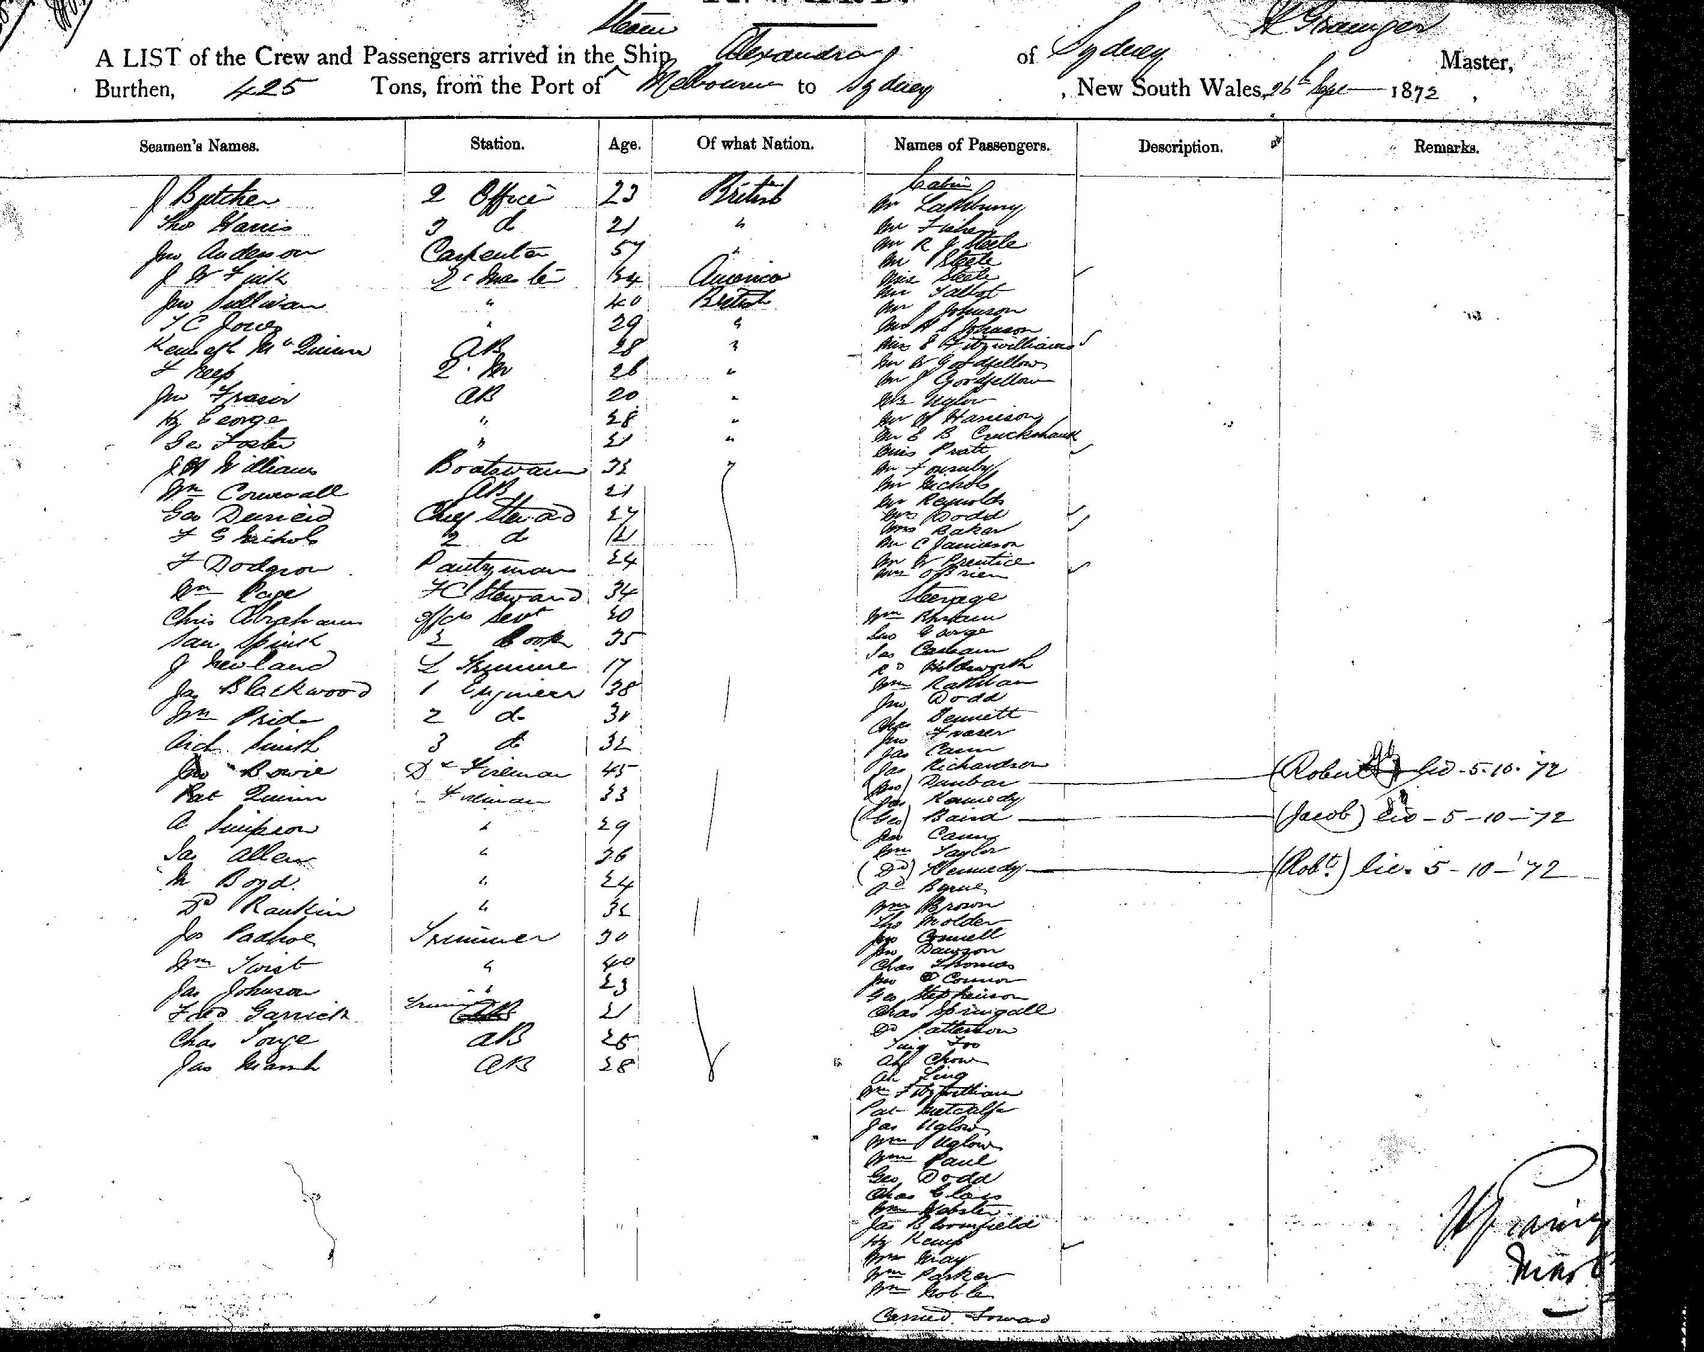 Steam
A LIST of the Crew and Passengers arrived in the Ship Alexandra of Sydney Grainger Master,
Burthen, 425 Tons, from the Port of Melbourne to Sydney, New South Wales, 26th Sept 1872,
Seamen's Names. Station. Age. Of what Nation. Names of Passengers. Description. Remarks.
J Butcher 2 Officer 23 British
Tho Harris 3 do 21 "
Jno Anderson Carpenter 57 "
J W 34 America
Jno Sullivan " 40 British
T C Jones " 29 "
Kenneth McQuinn AB 28 "
F Keep Q. Mr 26 "
Jno Fraser AB 20 "
Hy George " 28 "
Geo Foster " 21 "
J H Williams Boatswain 32 "
Wm Cornwall AB 21
Geo Chief Steward 27
F G Nichols 2 do
F Dodgson Pantryman 24
Wm Page F C Steward 34
Chris Abraham offrs Servt 20
Sam 2 Cook 35
J Newland 17
Jas Blackwood 1 Engineer 38
Wm Pride 2 do
Arch Smith 3 do 32
Jno Bowie Dk Fireman 45
Pat Quinn Fireman 33
A Simpson " 29
Jas Allen " 36
M Boyd " 24
Dd Rankin " 32
Jos Padhoe Trimmer 30
Wm Twist " 40
Jas Johnson " 23
Fred Garrick Trimmer 21
Chas AB 25
Jas Marsh AB 28
Cabin
Mr Lathbury
Mr Fisher
Mr R J Steele
Mr Steele
Miss Steele
Mr Talbot
Mr J Johnson
Mrs H S Johnson
Miss E Fitzwilliams
Mr W Goodfellow
Mr J Goodfellow
Uglow
Mr Harrison
Mr E B Cruckshank
Miss Pratt
Mr
Mr Nichols
Mr Reynolds
Mrs Dodd
Mrs Baker
Mr C Jamieson
Mr W Prentice
Mrs O'Brien
Steerage
Wm
Geo George
Jas
Rd Holdsworth
Wm
Jno Dodd
Chas Bennett
Jno Fraser
Jas Cann
Jas Richardson
(Jno) Dunbar (Robert) lic - 5.10.'72
Jas Kennedy
(Geo) Baird (Jacob) lic - 5-10-'72
Jno
Wm Taylor
(Dd) Kennedy (Robt.) lic. 5-10-'72
Pd Byrne
Wm Brown
Tho Molder
Jno Connell
Jno Dawson
Chas Thomas
Jno O Connor
Geo Stephenson
Chas Springall
Dd Patterson
Foo
Ah Chow
Ah Ling
Wm Fitzwilliam
Pat Metcalfe
Jas Uglow
Wm Uglow
Wm Paul
Geo Dodd
Chas Glass
Wm Webster
Jas Bloomfield
Hy Kemp
Mrs Gray
Wm Parker
Wm Noble
Carried Forward